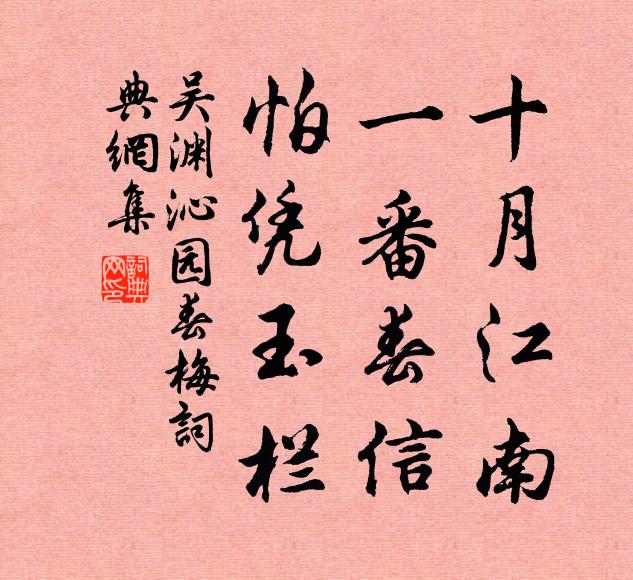 十月江南
一番春信
怕凭玉栏
吴渊沁园春梅詞
典網集
詞典网印